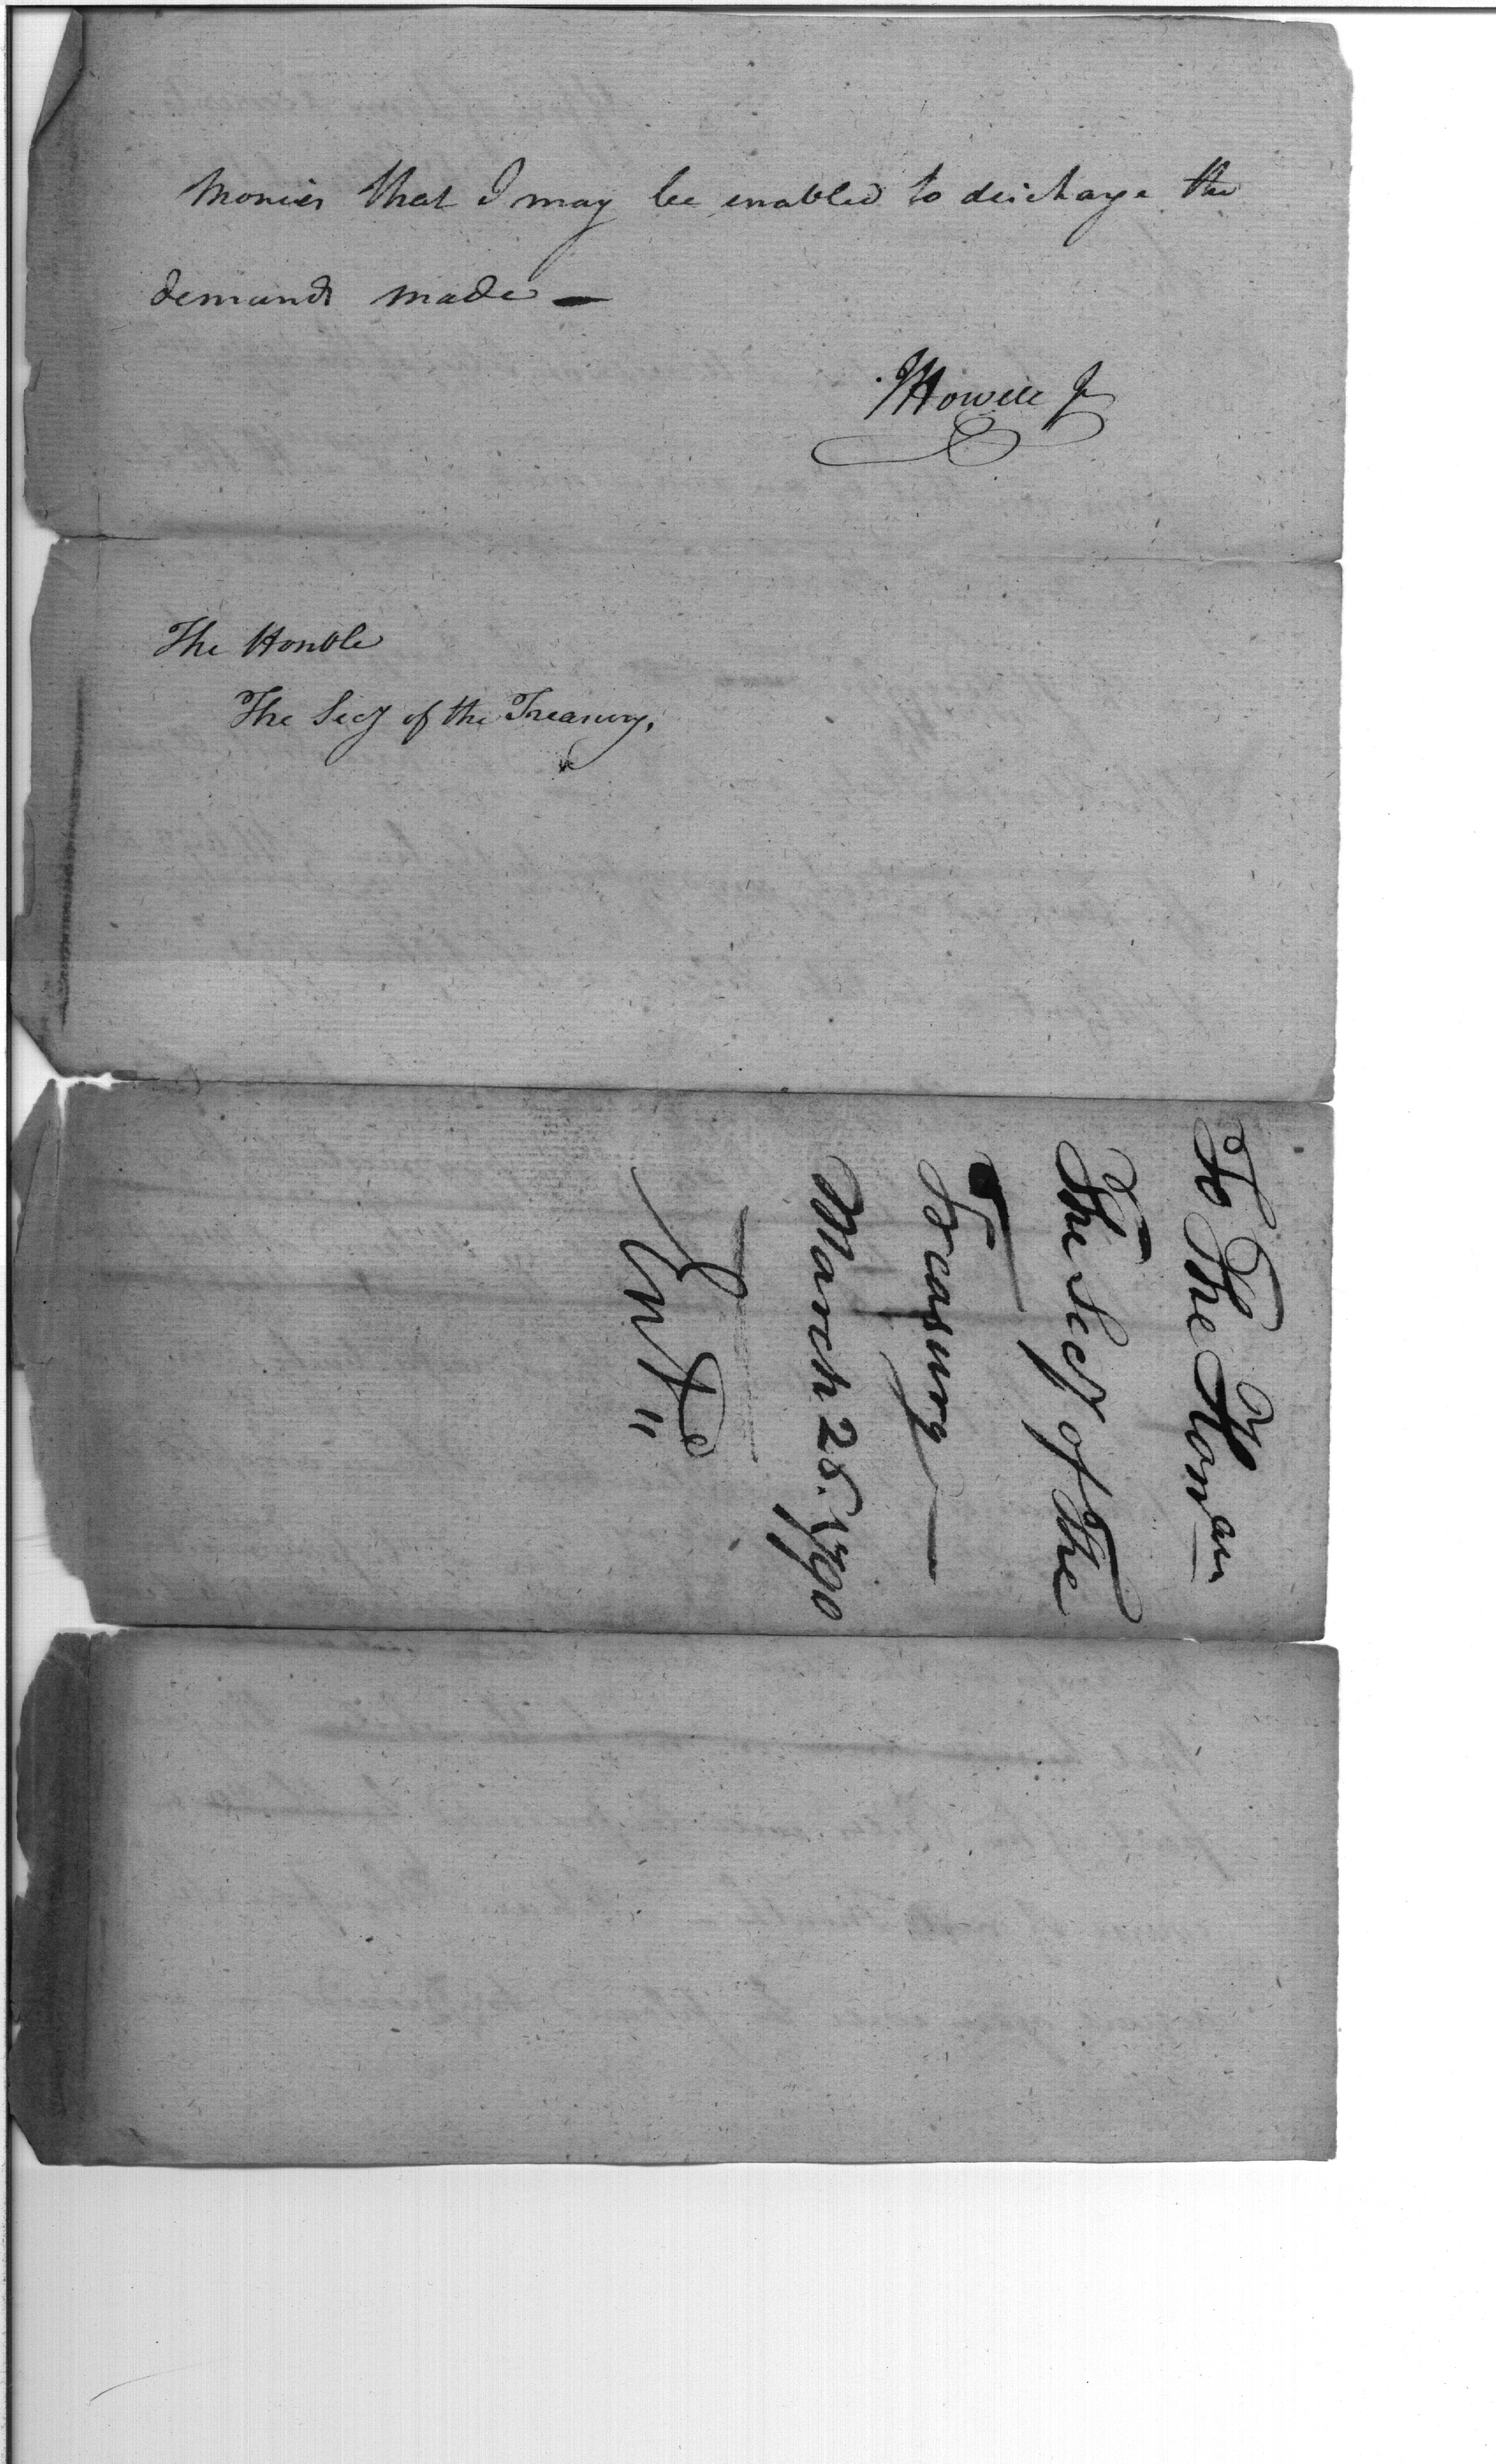 Monies that I may be enabled to discharge the
demands made —
JHowell Jr
The Honble
The Secy of the Treasury,
To The Honble
The Secy of the
Treasury —
March 25. 1790
Entd "